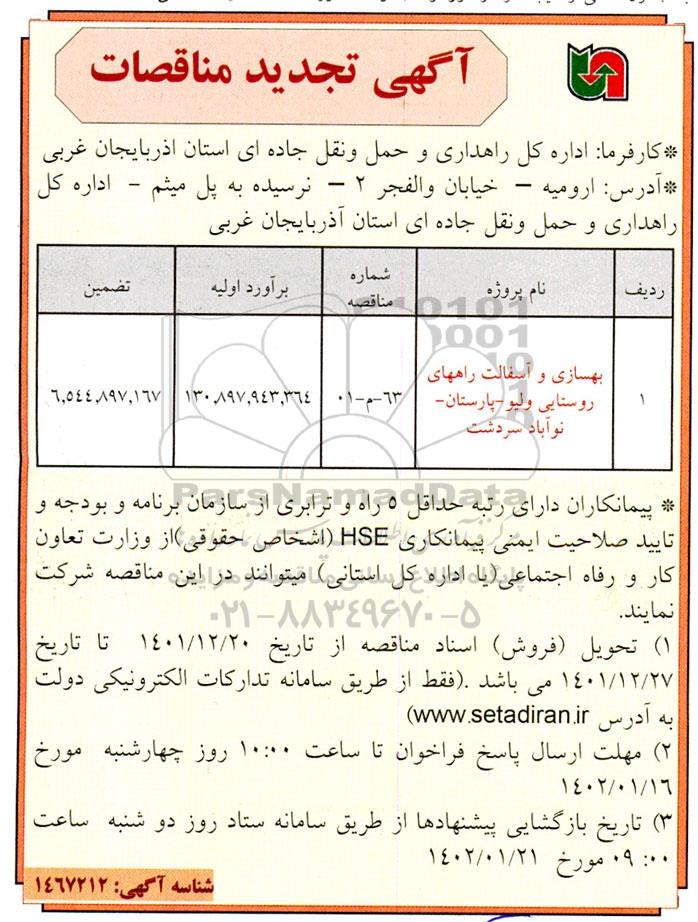 آگهی تجدید مناقصات
*کارفرما: اداره کل راهداری و حمل ونقل جاده ای استان اذربایجان غربی
*آدرس: ارومیه – خیابان والفجر ۲ – نرسیده به پل میثم - اداره کل
راهداری و حمل ونقل جاده ای استان آذربایجان غربی
ردیف نام پروژه شماره مناقصه برآورد اولیه تضمین
۱ بهسازی و آسفالت راههای روستایی ولیو-پارستان-نوآباد سردشت ۶۳-م-۰۱ ۱۳۰,۸۹۷,۹۴۳,۳۶۴ ۶,۵۴۴,۸۹۷,۱۶۷
ParsNamadData
* پیمانکاران دارای رتبه حداقل ۵ راه و ترابری از سازمان برنامه و بودجه و
تایید صلاحیت ایمنی پیمانکاری HSE (اشخاص حقوقی)از وزارت تعاون
کار و رفاه اجتماعی(یا اداره کل استانی) میتوانند در این مناقصه شرکت
نمایند.
۰۲۱-۸۸۳۴۹۶۷۰-۵
۱) تحویل (فروش) اسناد مناقصه از تاریخ ۱۴۰۱/۱۲/۲۰ تا تاریخ
۱۴۰۱/۱۲/۲۷ می باشد .(فقط از طریق سامانه تدارکات الکترونیکی دولت
به آدرس www.setadiran.ir)
۲) مهلت ارسال پاسخ فراخوان تا ساعت ۱۰:۰۰ روز چهارشنبه مورخ
۱۴۰۲/۰۱/۱۶
۳) تاریخ بازگشایی پیشنهادها از طریق سامانه ستاد روز دو شنبه ساعت
۰۹:۰۰ مورخ ۱۴۰۲/۰۱/۲۱
شناسه آگهی: ۱۴۶۷۲۱۲